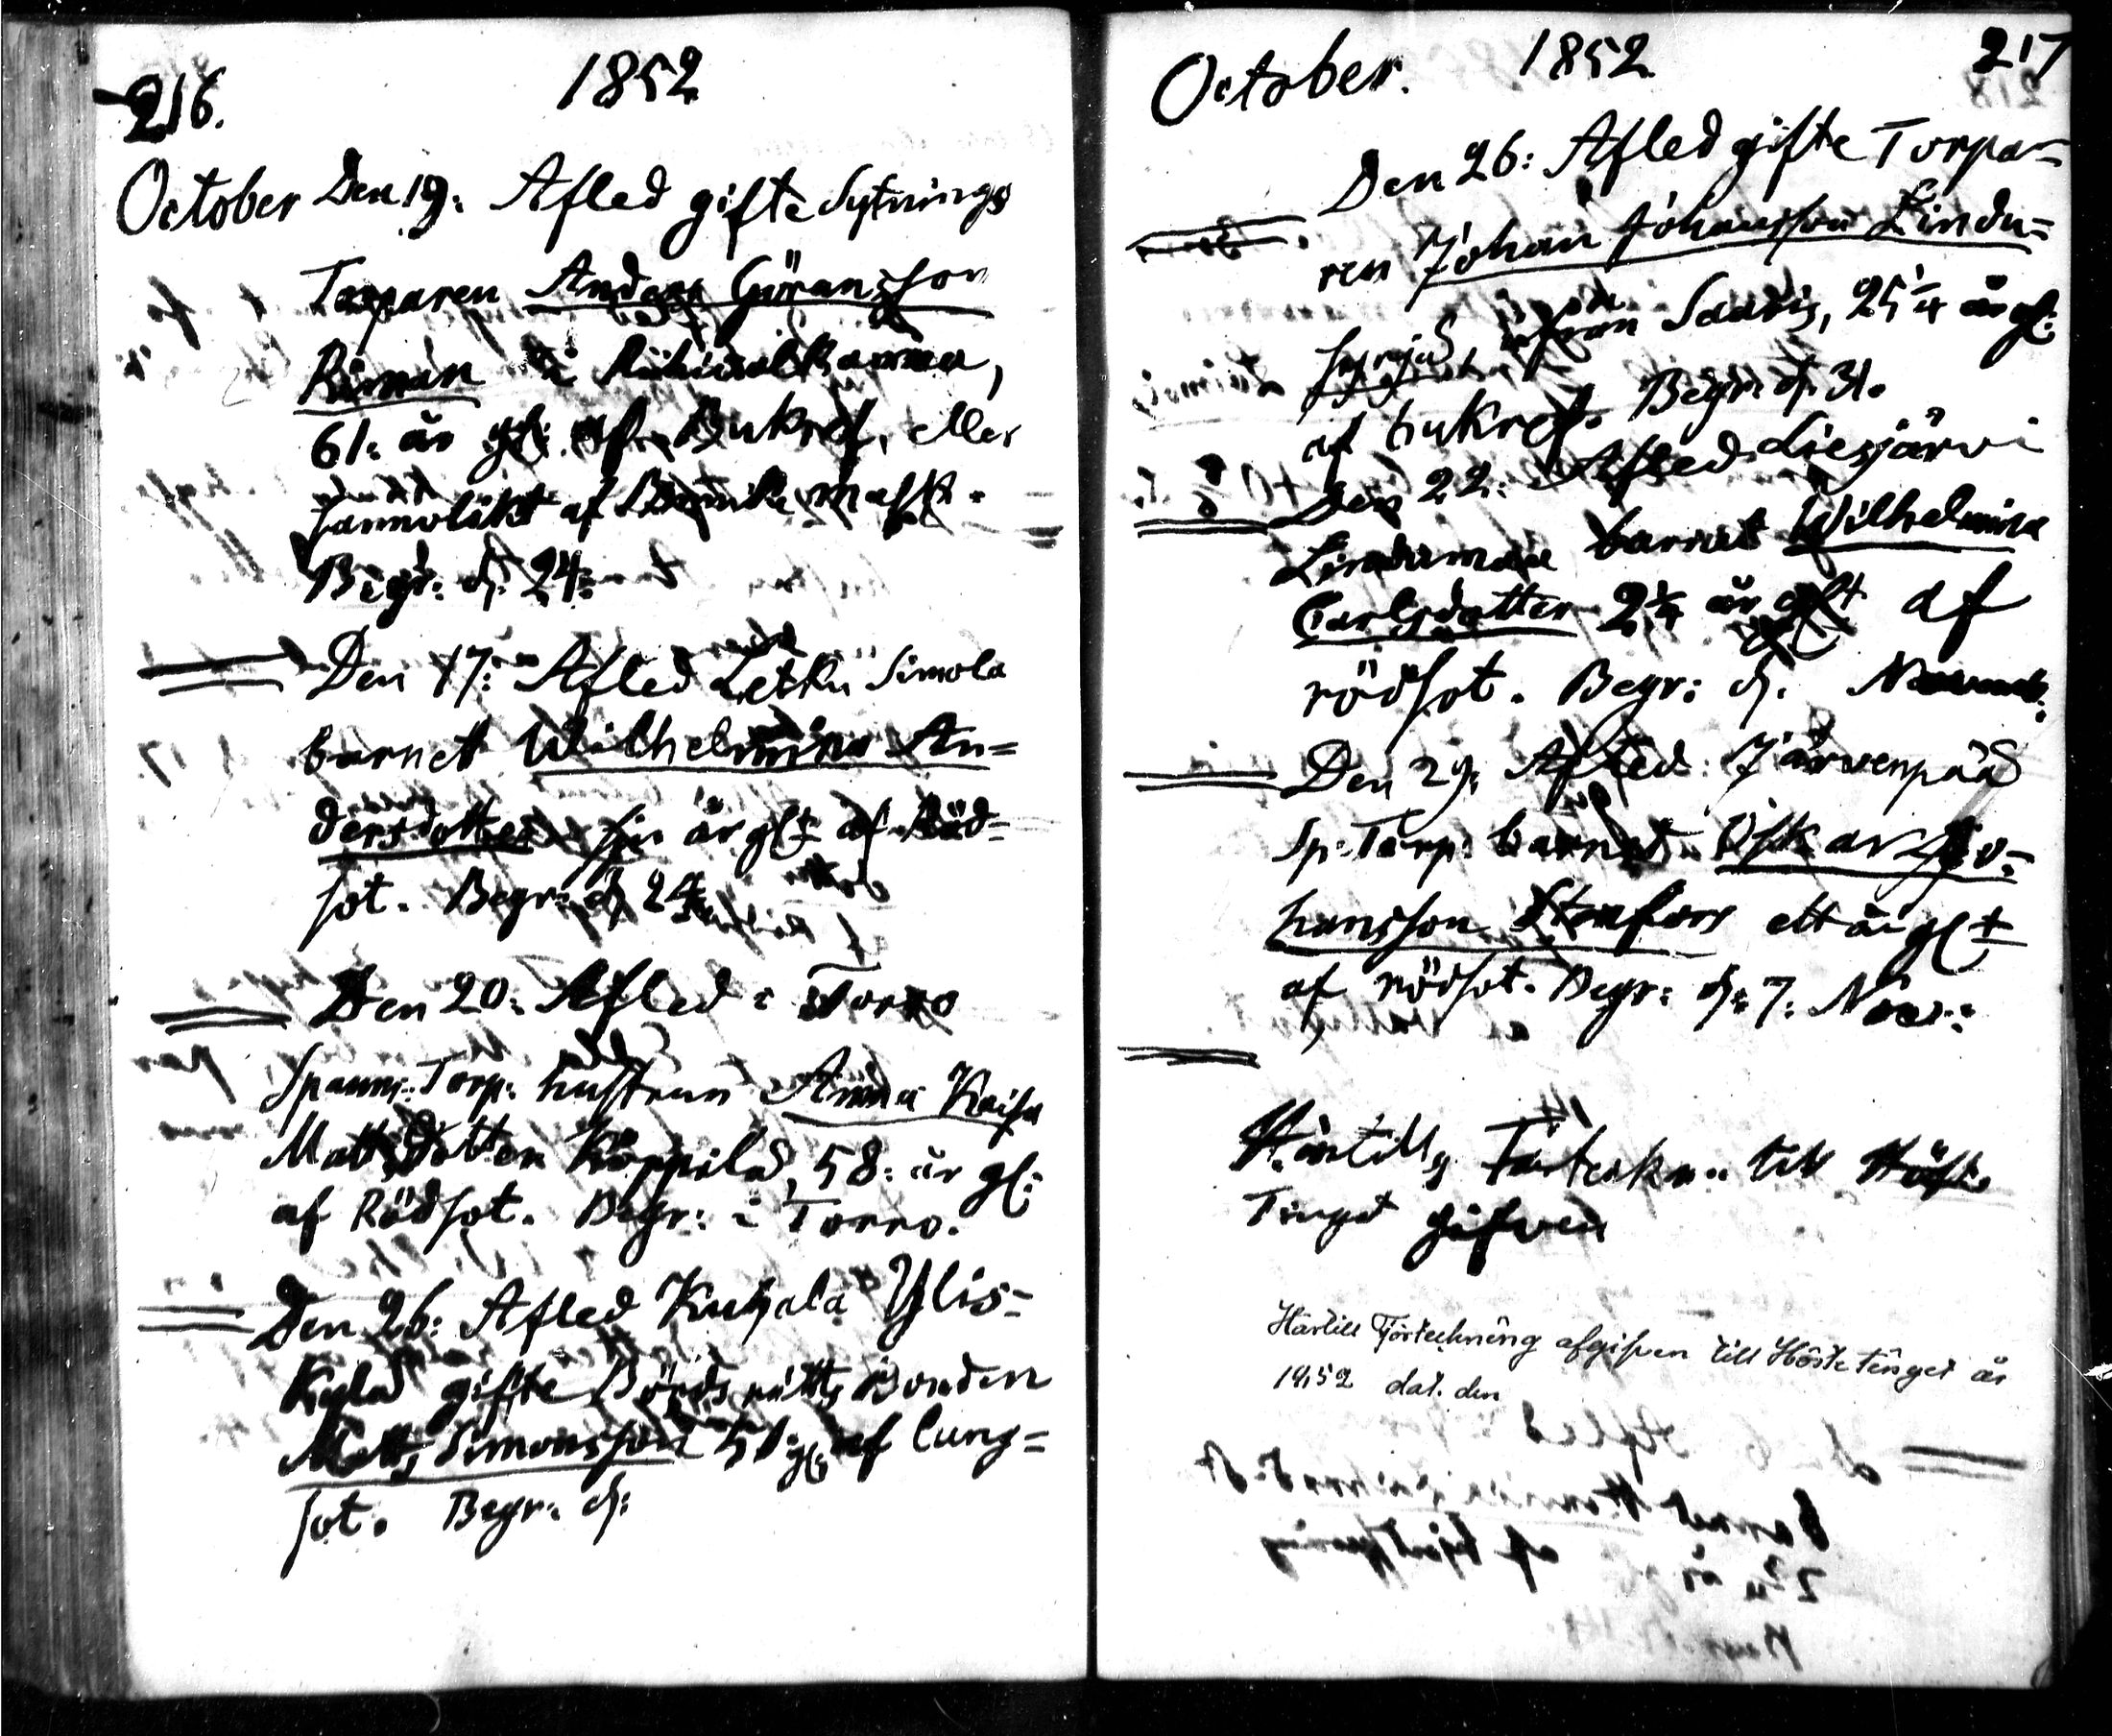 216.
1852
October Den 19: Afled gifte Sytnings
Torparen Anders Göransson
Riman i
61: år gl: af Bukref, eller
sannolikt af mask.
Begr: d. 24:
Den 17: Afled Letku Simola
barnet Wilhelmina An=
dersdotter år glt af Röd=
sot. Begr: d. 24
Den 20: Afled i Torro
Spanm: Torp: hustrun Anna Kaisa
Mattsdotter Köppilä, 58: år gl:
af Rödsot. Begr: i Torro.
Den 26: Afled Kuhala Ylis=
Kylä gifte Börds rätts Bonden
Matts Simonsson 51: gl: af lung=
sot. Begr: d:
October. 1852 217
Den 26: Afled gifte Torpa=
ren Johan Johansson Lindu=
från Saaris, 25 1/4 år gl:
af bukref. Begr: d. 31.
Den 22: Afled Liesjärvi
barnet Wilhelmina
Carlsdotter 2 1/4 år glt af
rödsot. Begr: d.
Den 29: Afled Järvenpää
Sp: Torp: barnet Oskar Jo=
hansson Stenfors ett år glt
af rödsot. Begr: d: 7: Nov:
Härtills Förteckn: till Höste
Tinget gifven
Härtill Förteckning afgifven till Höstetinget år
1852 dat. den